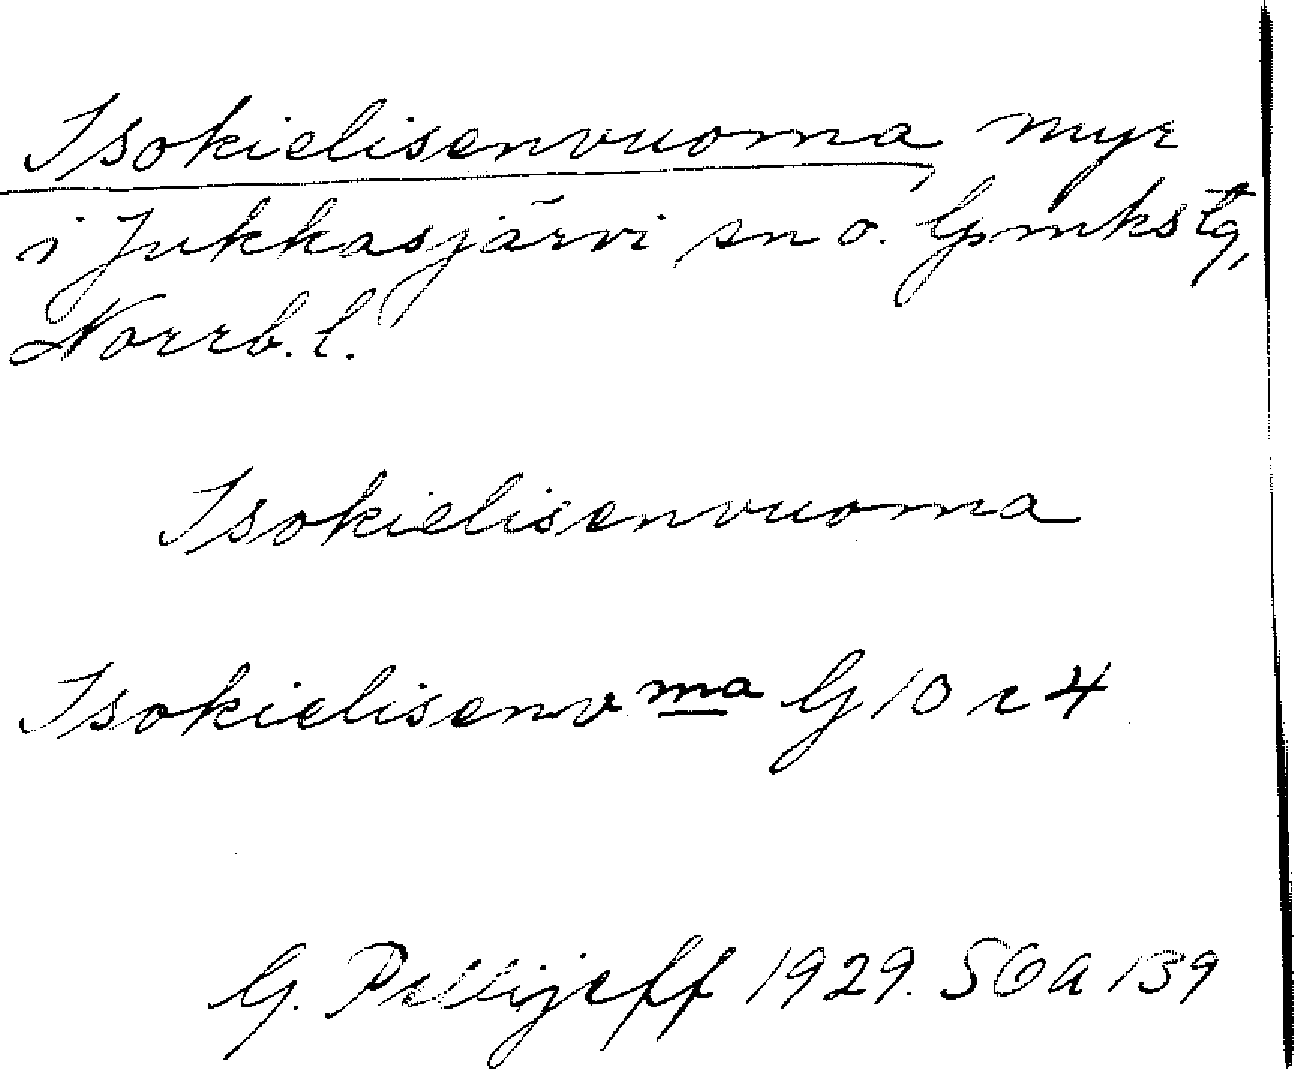 Isokielisenvuoma, myr
i Jukkasjärvi sn o. Gmkstg,
Norrb. l.
Isokielisenvuoma
Isokielisenvma G 10 r 4
G. Pellijeff 1929. SOA 139